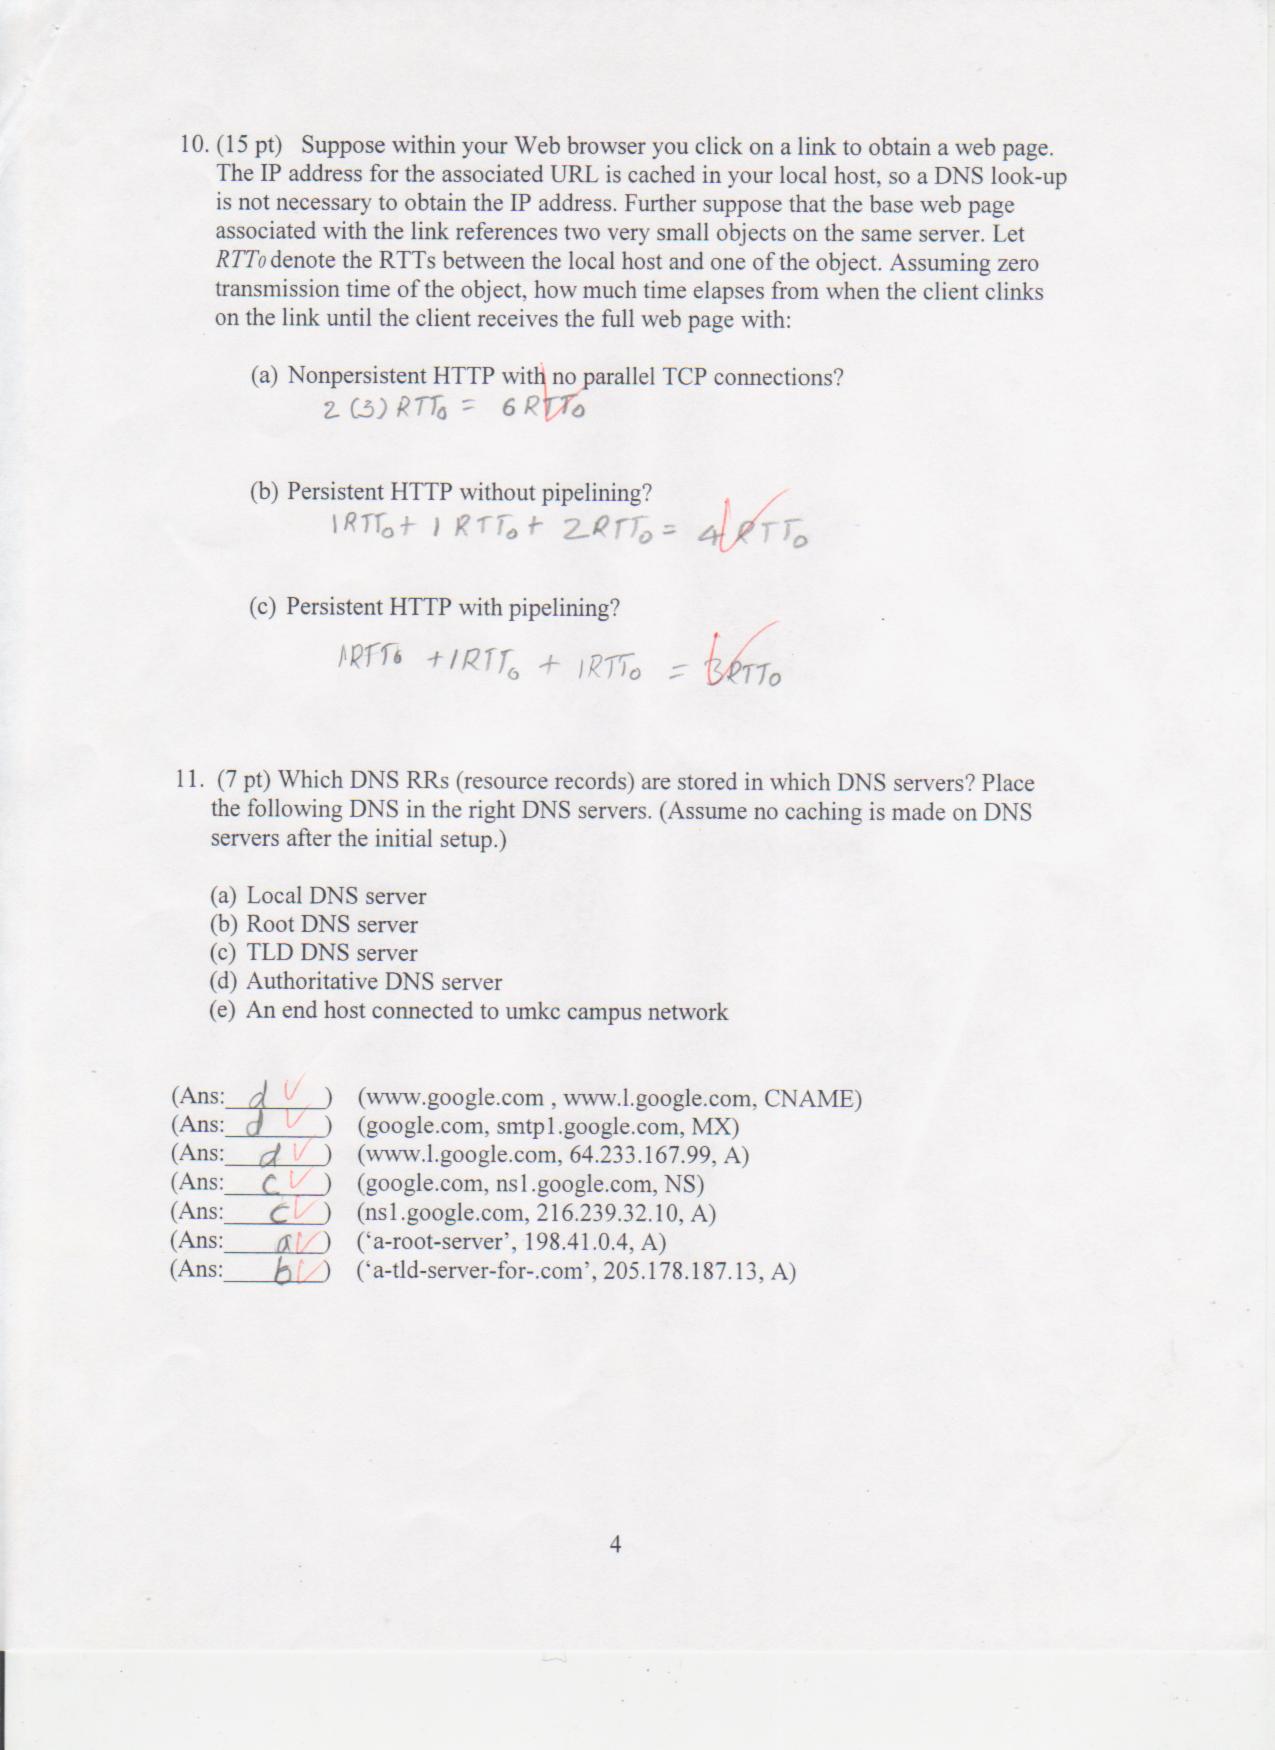 10. (15 pt) Suppose within your Web browser you click on a link to obtain a web page.
The IP address for the associated URL is cached in your local host, so a DNS look-up
is not necessary to obtain the IP address. Further suppose that the base web page
associated with the link references two very small objects on the same server. Let
RTT0 denote the RTTs between the local host and one of the object. Assuming zero
transmission time of the object, how much time elapses from when the client clinks
on the link until the client receives the full web page with:
(a) Nonpersistent HTTP with no parallel TCP connections?
2 (3) RTT0 = 6 RTT0
(b) Persistent HTTP without pipelining?
1RTT0 + 1 RTT0 + 2RTT0 = 4 RTT0
(c) Persistent HTTP with pipelining?
1RTT0 + 1RTT0 + 1RTT0 = 3RTT0
11. (7 pt) Which DNS RRs (resource records) are stored in which DNS servers? Place
the following DNS in the right DNS servers. (Assume no caching is made on DNS
servers after the initial setup.)
(a) Local DNS server
(b) Root DNS server
(c) TLD DNS server
(d) Authoritative DNS server
(e) An end host connected to umkc campus network
(Ans: d ) (www.google.com , www.l.google.com, CNAME)
(Ans: d ) (google.com, smtp1.google.com, MX)
(Ans: d ) (www.l.google.com, 64.233.167.99, A)
(Ans: c ) (google.com, ns1.google.com, NS)
(Ans: c ) (ns1.google.com, 216.239.32.10, A)
(Ans: a ) (‘a-root-server’, 198.41.0.4, A)
(Ans: b ) (‘a-tld-server-for-.com’, 205.178.187.13, A)
4